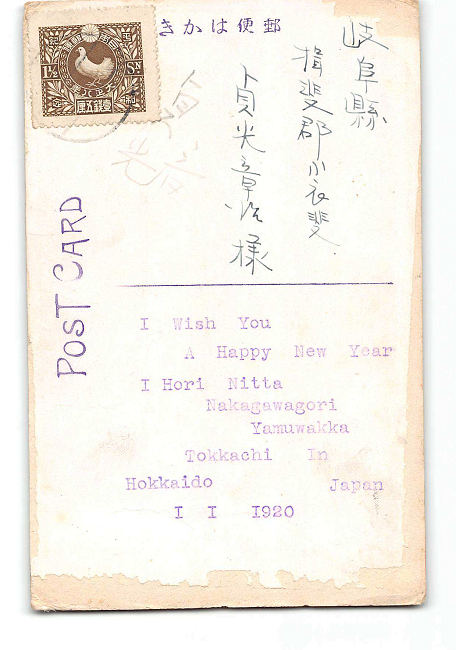 きかは便郵
岐阜縣
揖斐郡小衣斐
貞光章治様
POST CARD
I Wish You
A Happy New Year
I Hori Nitta
Nakagawagori
Yamuwakka
Tokkachi In
Hokkaido Japan
I I 1920